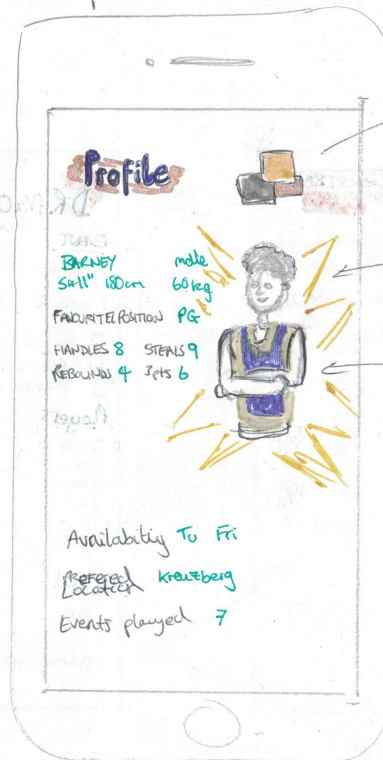 Profile
BARNEY male
5ft11" 180cm 60kg
FAVOURITE POSITION PG
HANDLES 8 STEALS 9
REBOUNDS 4 3pts 6
Availabitiy Tu Fri
Prefered
Location Kreuzberg
Events played 7
Players